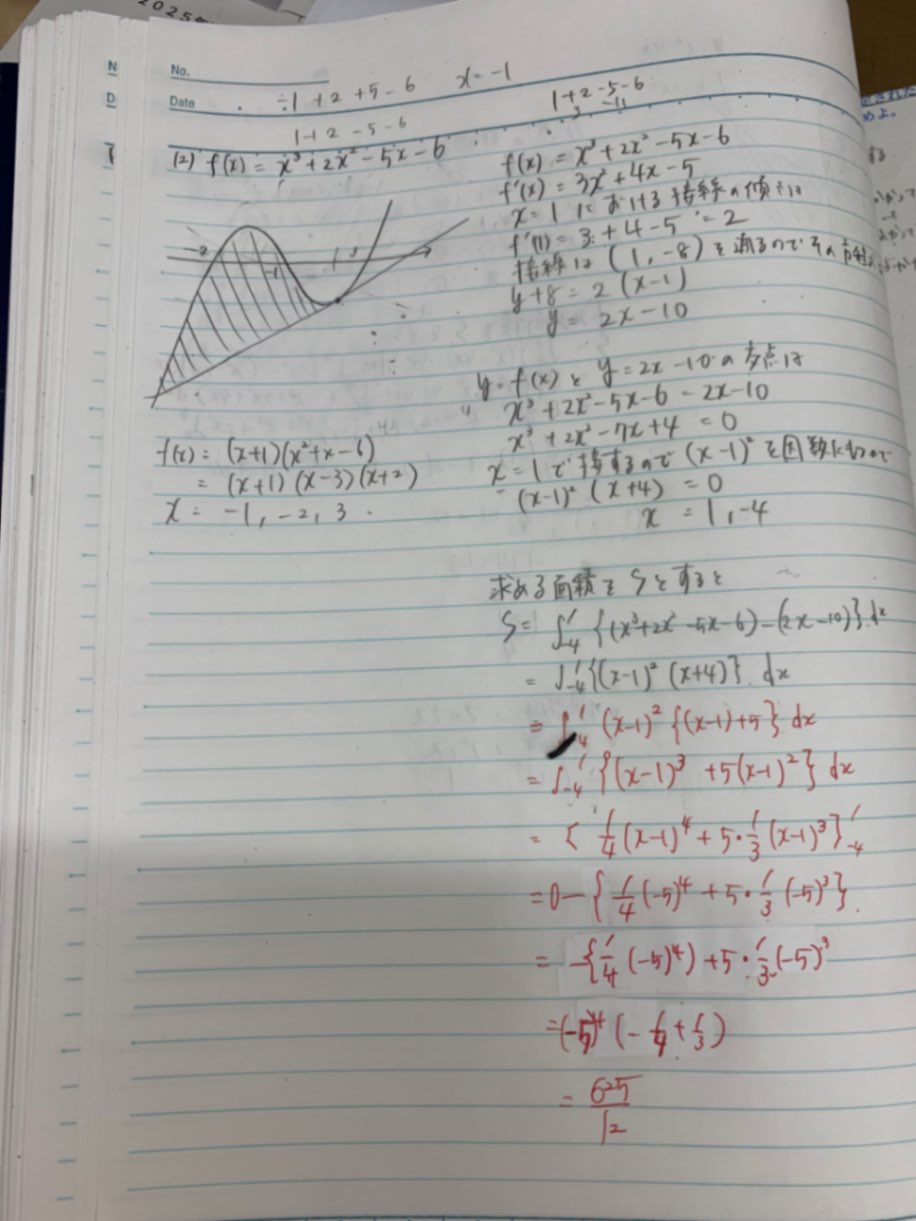 2025年
No.
Date
÷1+2+5-6 x=-1
1+2-5-6
3 -11
1+2-5-6
(2) f(x) = x³+2x²-5x-6
-2
-1
3
f(x) = (x+1)(x²+x-6)
= (x+1)(x-3)(x+2)
x = -1, -2, 3.
f(x) = x³+2x²-5x-6
f'(x) = 3x²+4x-5
x=1における接線の傾きは
f'(1) = 3+4-5 = 2
接線は(1, -8)を通るのでその方程式は
y+8 = 2(x-1)
y = 2x-10
y=f(x)とy=2x-10の交点は
x³+2x²-5x-6 = 2x-10
x³+2x²-7x+4 = 0
x=1で接するので(x-1)²を因数にもつので
(x-1)²(x+4) = 0
x = 1, -4
求める面積をSとすると
S = ∫₋₄¹{(x³+2x²-5x-6)-(2x-10)}dx
= ∫₋₄¹{(x-1)²(x+4)}dx
= ∫₋₄¹(x-1)²{(x-1)+5}dx
= ∫₋₄¹{(x-1)³+5(x-1)²}dx
= [1/4(x-1)⁴+5・1/3(x-1)³]₋₄¹
=0-{1/4(-5)⁴+5・1/3(-5)³}
= -{1/4(-5)⁴)+5・1/3(-5)³
=(-5)⁴(-1/4+1/3)
= 625/12